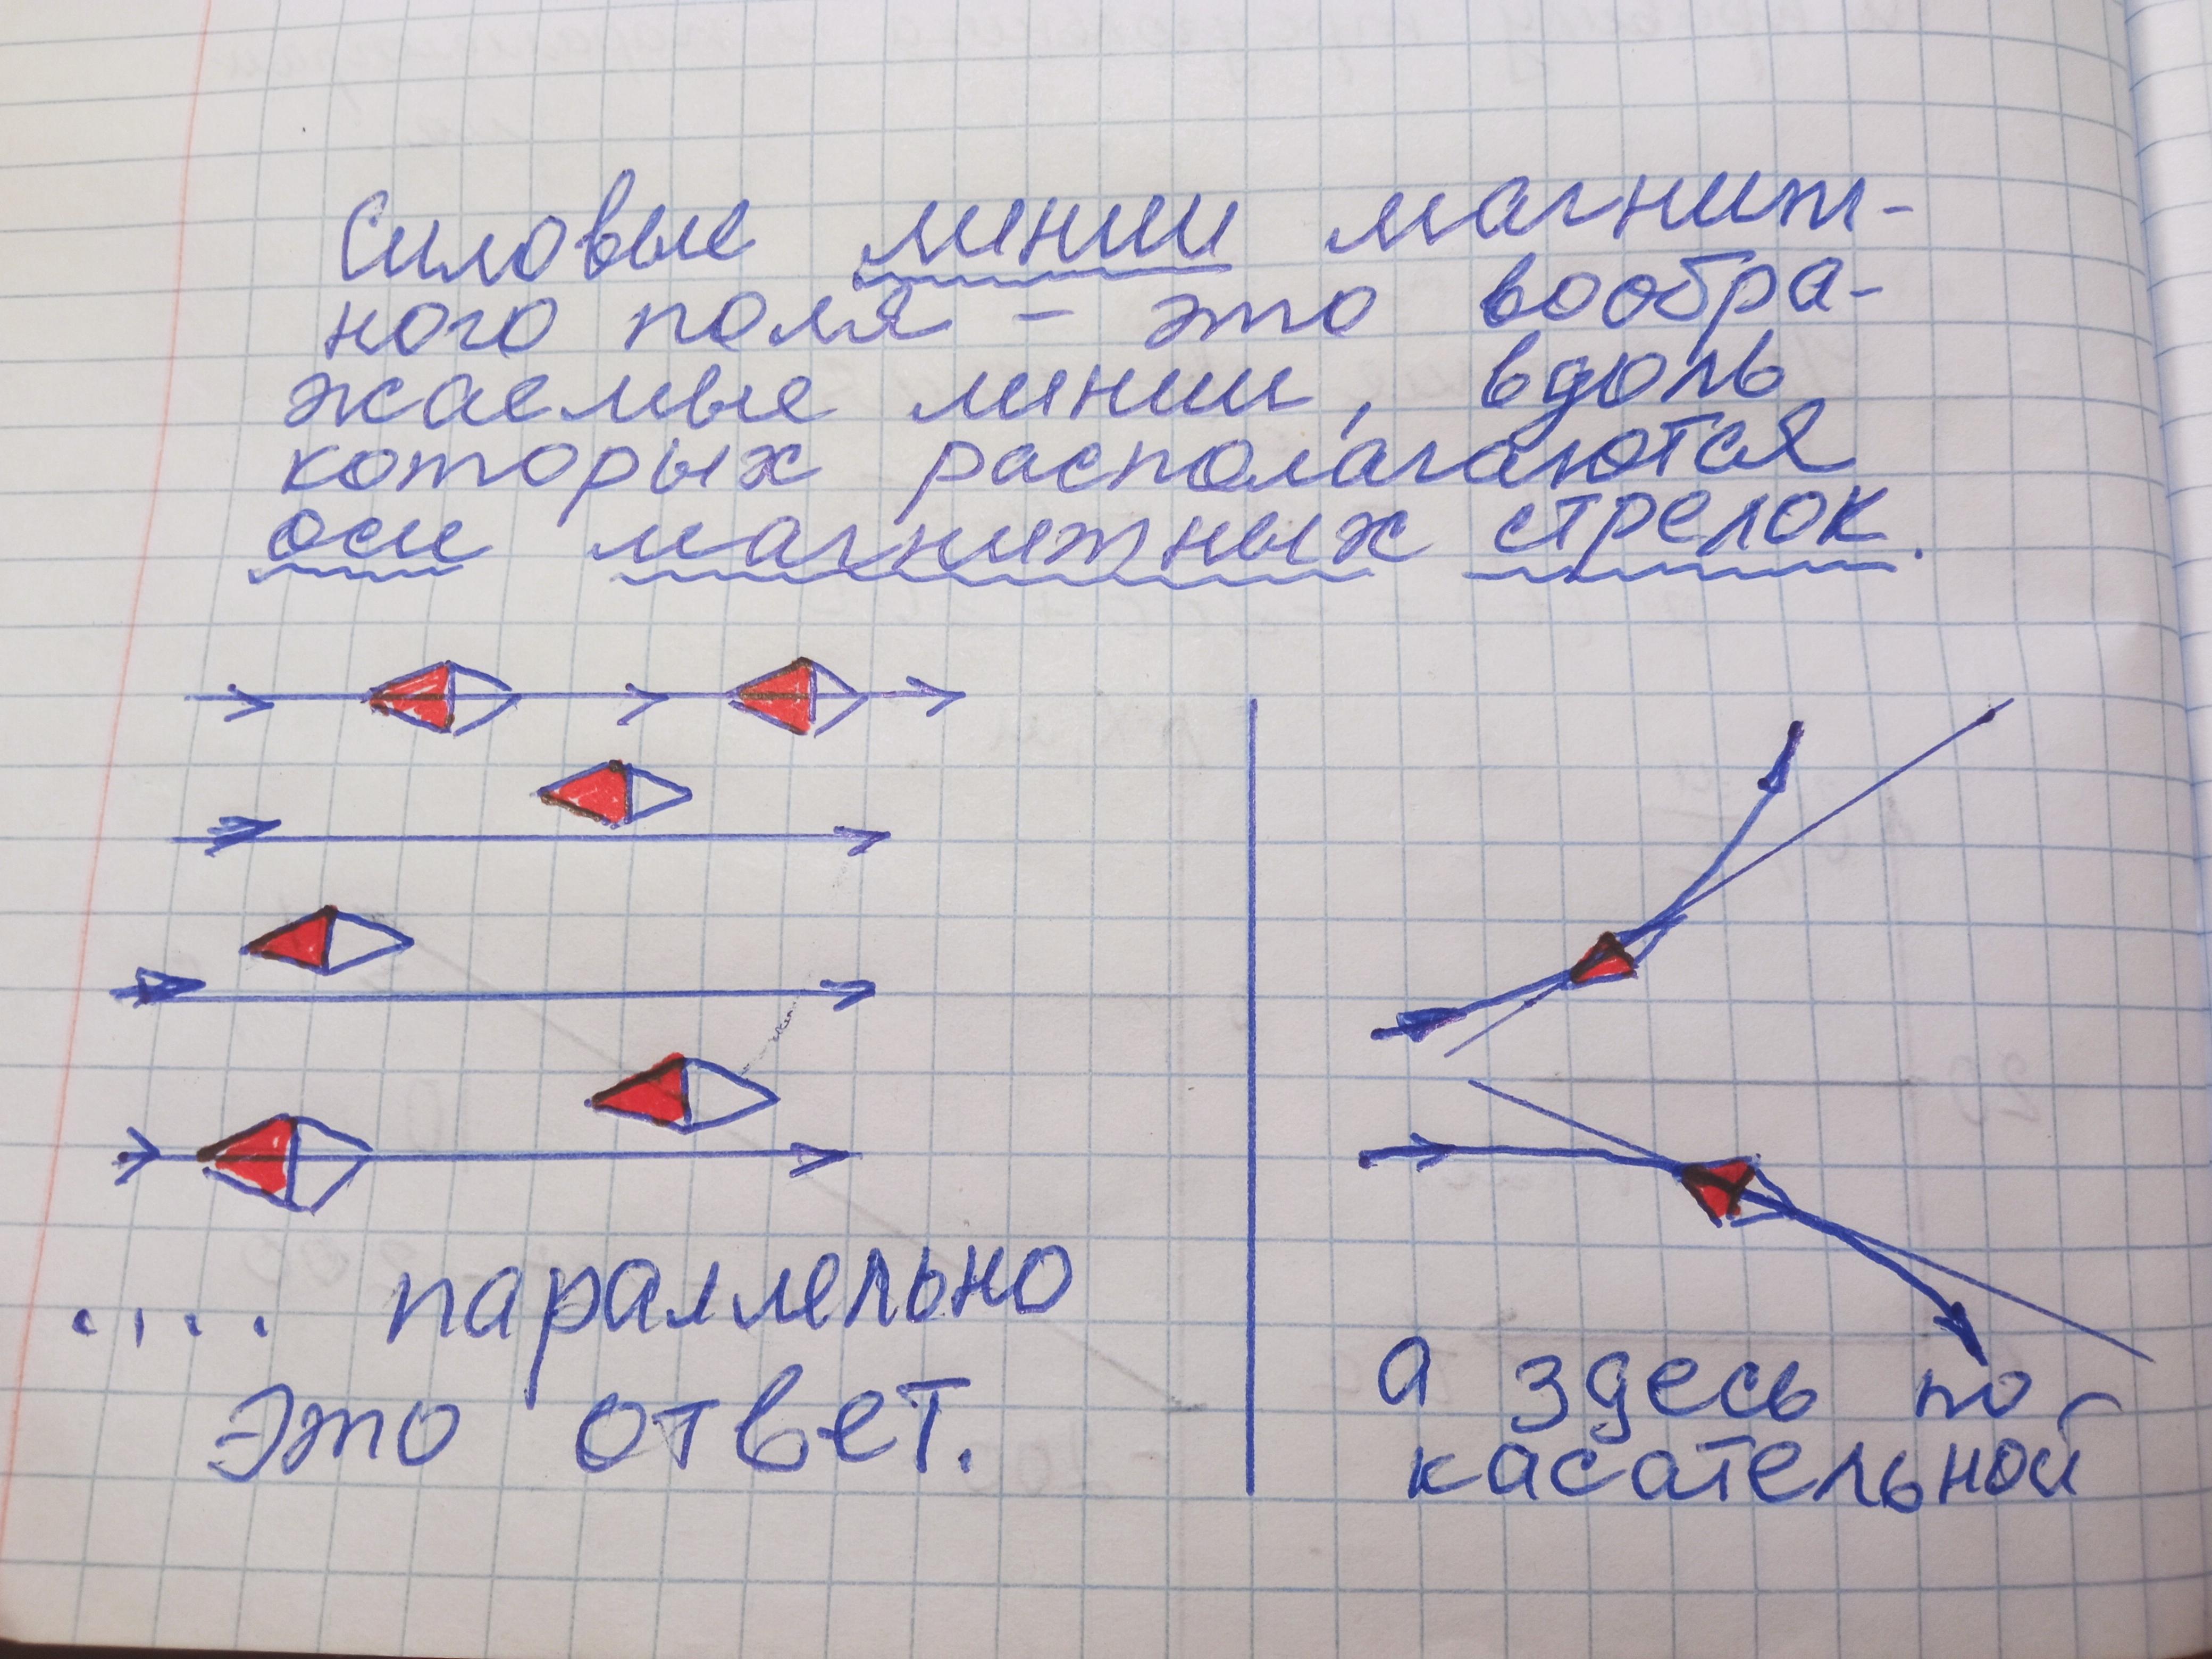 Силовые линии магнит-
ного поля - это вообра-
жаемые линии, вдоль
которых располагаются
оси магнитных стрелок.
.... параллельно
Это ответ.
а здесь по
касательной